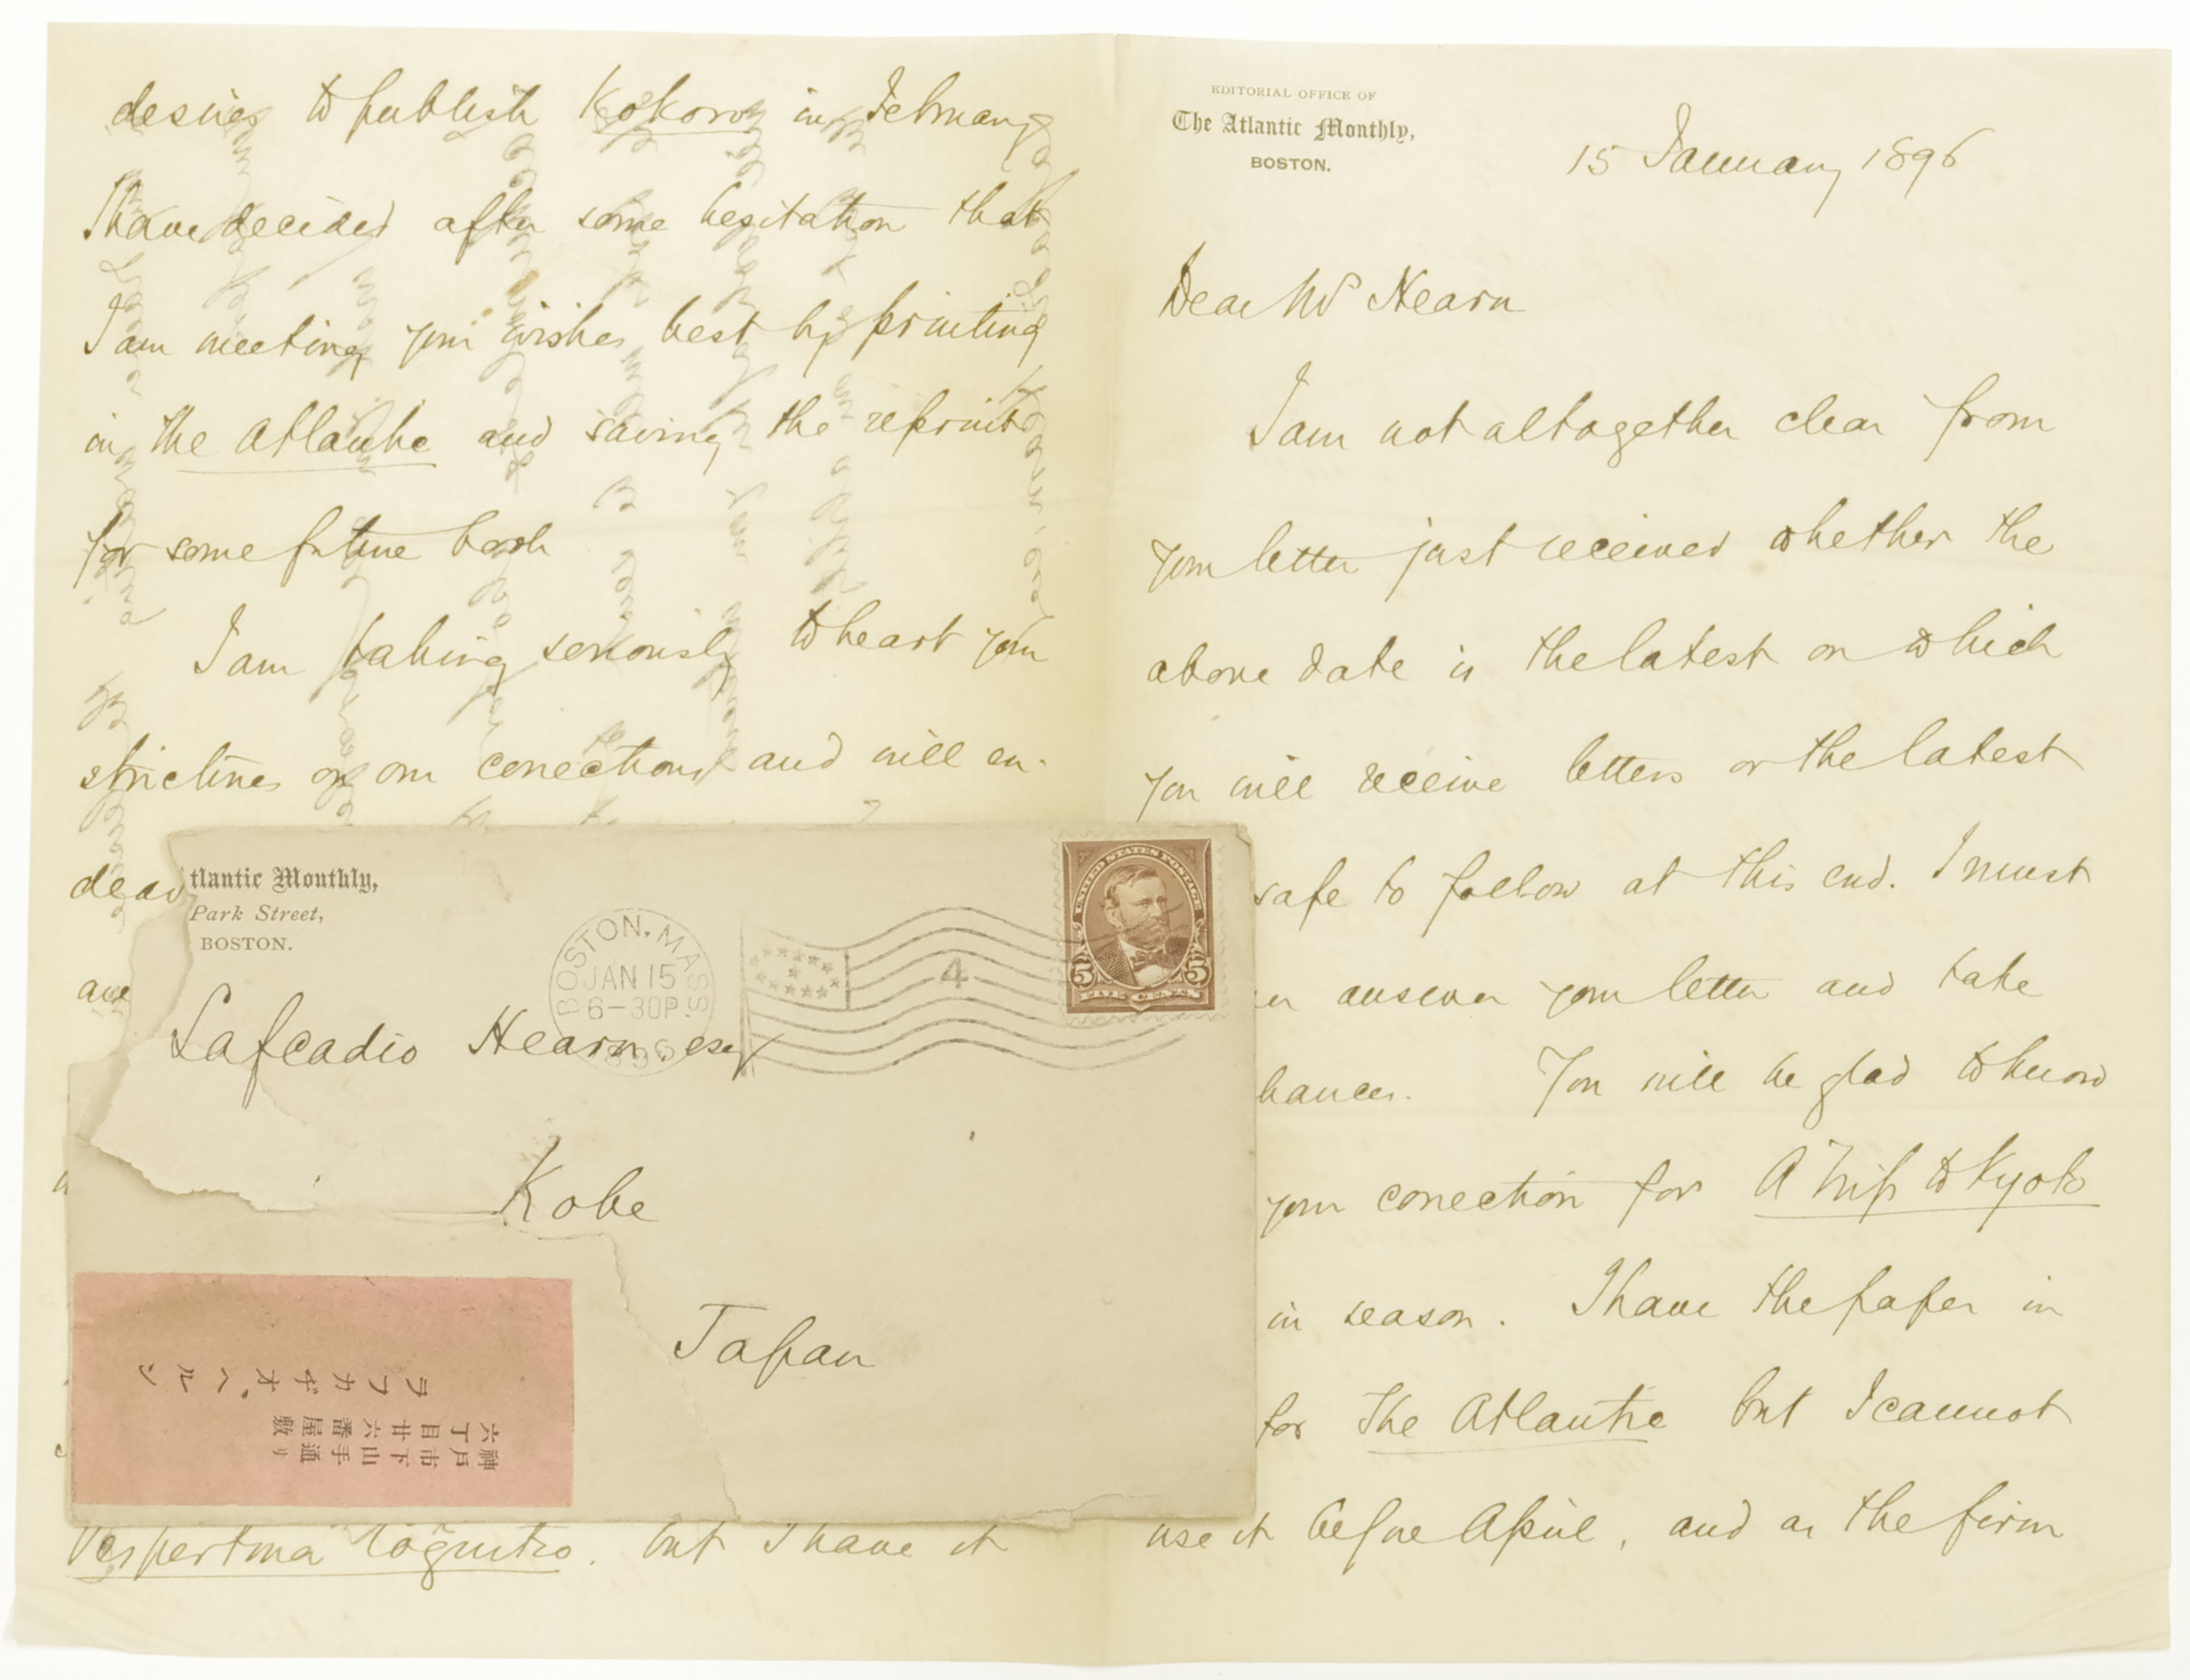 EDITORIAL OFFICE OF
The Atlantic Monthly,
BOSTON.
15 January 1896
Dear Mr Hearn
I am not altogether clear from
your letter just received whether the
above date is the latest on which
you will receive letters or the latest
safe to follow at this end. I must
answer your letter and take
hances. You will be glad to know
your correction for A Trip to Kyoto
in season. I have the paper in
for The Atlantic but I cannot
use it before April, and as the firm
desires to publish Kokoro in February
I have decided after some hesitation that
I am meeting your wishes best by printing
in the Atlantic and saving the reprint
for some future book
I am taking seriously to heart your
strictures on our corrections and will en-
deav
Vespertina Cognitio. but I have it
tlantic Monthly,
Park Street,
BOSTON.
BOSTON, MASS
JAN 15
6-30P
1896
4
UNITED STATES POSTAGE
5 5
FIVE CENTS
Lafcadio Hearn esq
Kobe
Japan
神戸市下山手通り
六丁目廿六番屋敷
ラフカヂオ、ヘルン